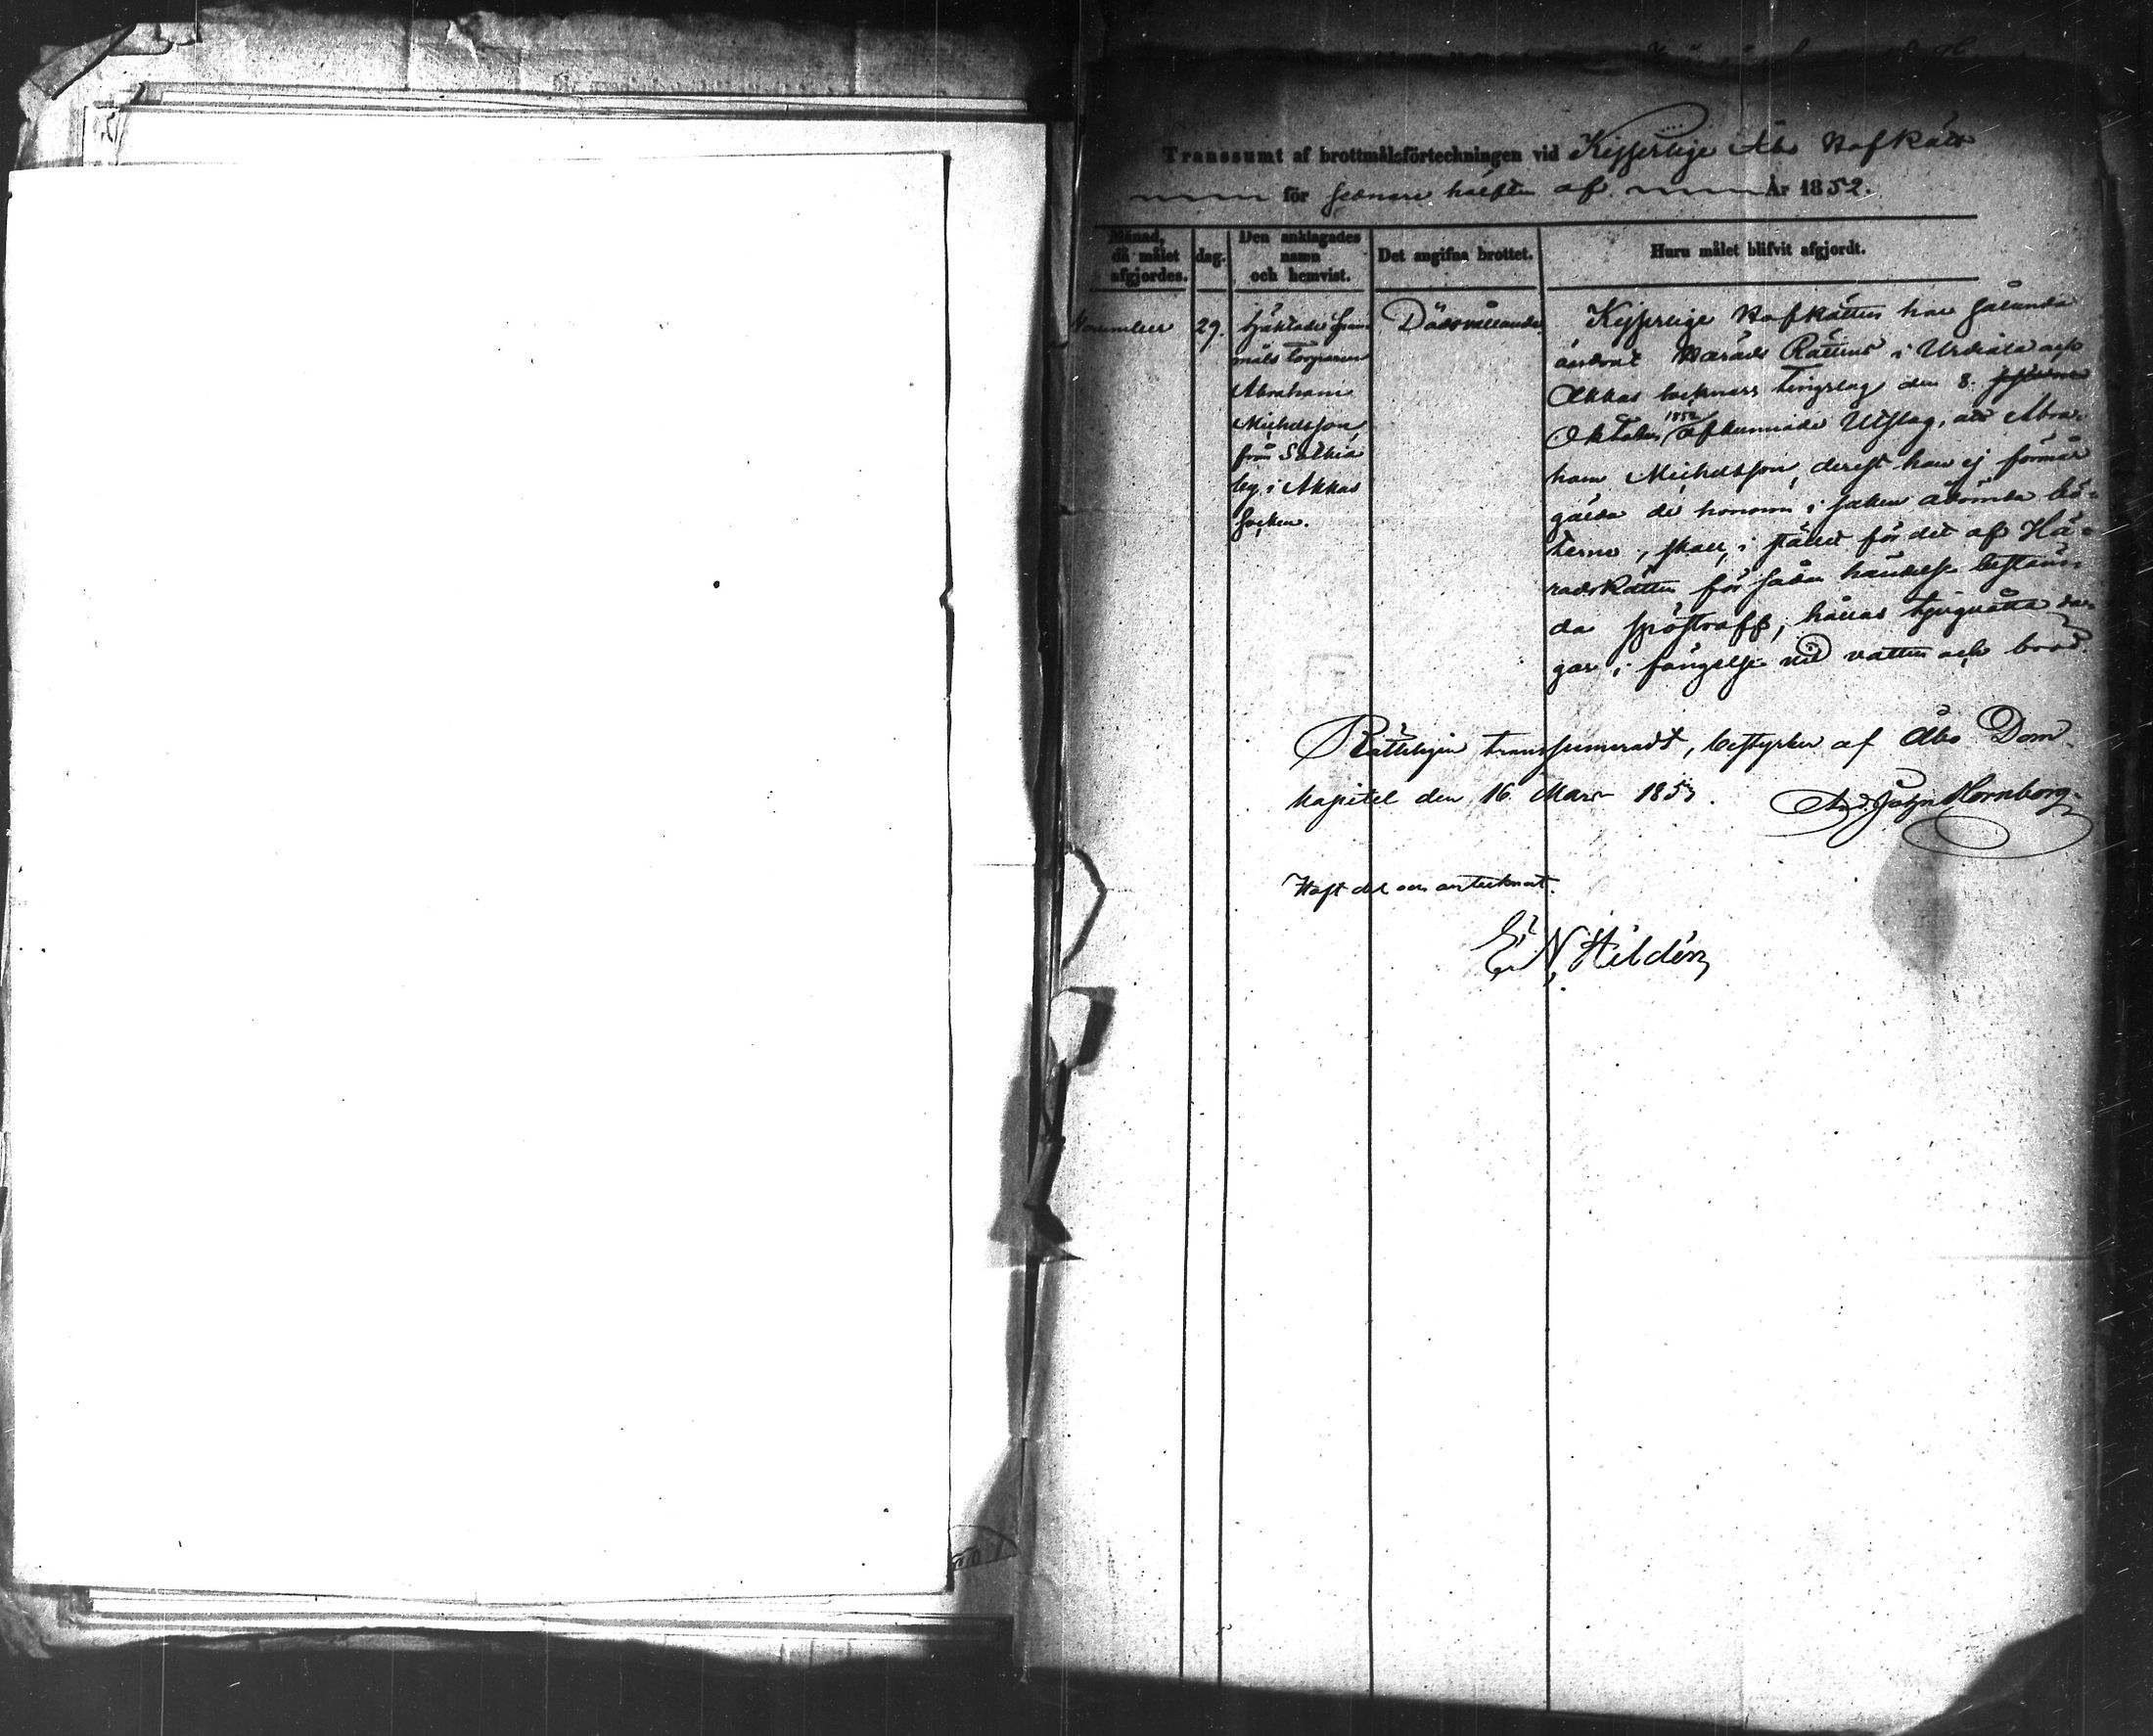 Transsumt af brottmålsförteckningen vid Kejserlige Åbo HofRätt
för sednare hälften af År 1852.
Månad, då målet afgjordes.
dag.
Den anklagades namn och hemvist.
Det angifna brottet.
Huru målet blifvit afgjordt.
November
29.
Häktade
måls Torparen
Abraham
Michelsson
från Salkia
by i Akkas
socken.
Dådsvållande
Kejserlige HofRätten har sålunda
ändrat Härads Rättens i Urdiala och
Akkas socknars tingslag den 8.
Oktober 1852 afkunnade Utslag, att Abra-
ham Michelsson, derest han ej förmår
gälda de honom i saken ådömda bö-
terne, skall, i stället för det af Hä-
radsRätten för sådan händelse bestäm-
da spöstraff, hållas tjuguåtta da-
gar i fängelse vid vatten och bröd.
Rätteligen transsumeradt, bestyrker af Åbo Dom-
kapitel den 16 Mars 1853. And. John Hornborg.
Haft del och antecknat.
E. N. Hildén